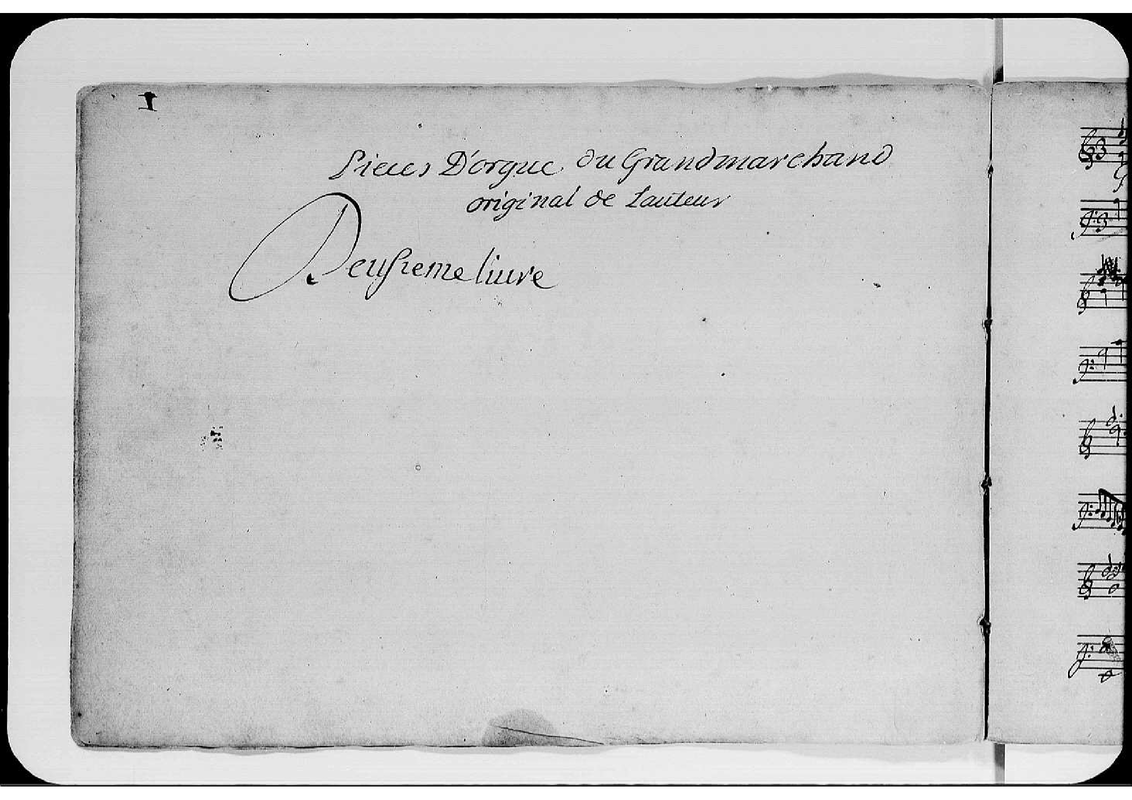 1
Pieces D'orgue du Grandmarchand
original de Lauteur
Deusieme liure